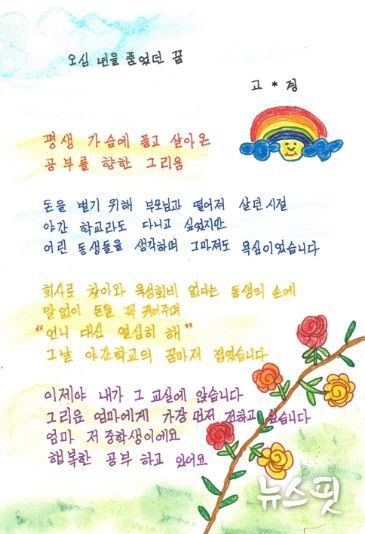 오십 년을 품었던 꿈
고*정
평생 가슴에 품고 살아온
공부를 향한 그리움
돈을 벌기 위해 부모님과 떨어져 살던 시절
야간 학교라도 다니고 싶었지만
어린 동생들을 생각하며 그마저도 욕심이었습니다
회사로 찾아와 육성회비 없다는 동생의 손에
말없이 돈을 꼭 쥐어주며
“언니 대신 열심히 해”
그날 야간학교의 꿈마저 접었습니다
이제야 내가 그 교실에 앉습니다
그리운 엄마에게 가장 먼저 전하고 싶습니다
엄마 저 중학생이에요
행복한 공부 하고 있어요.
뉴스핏